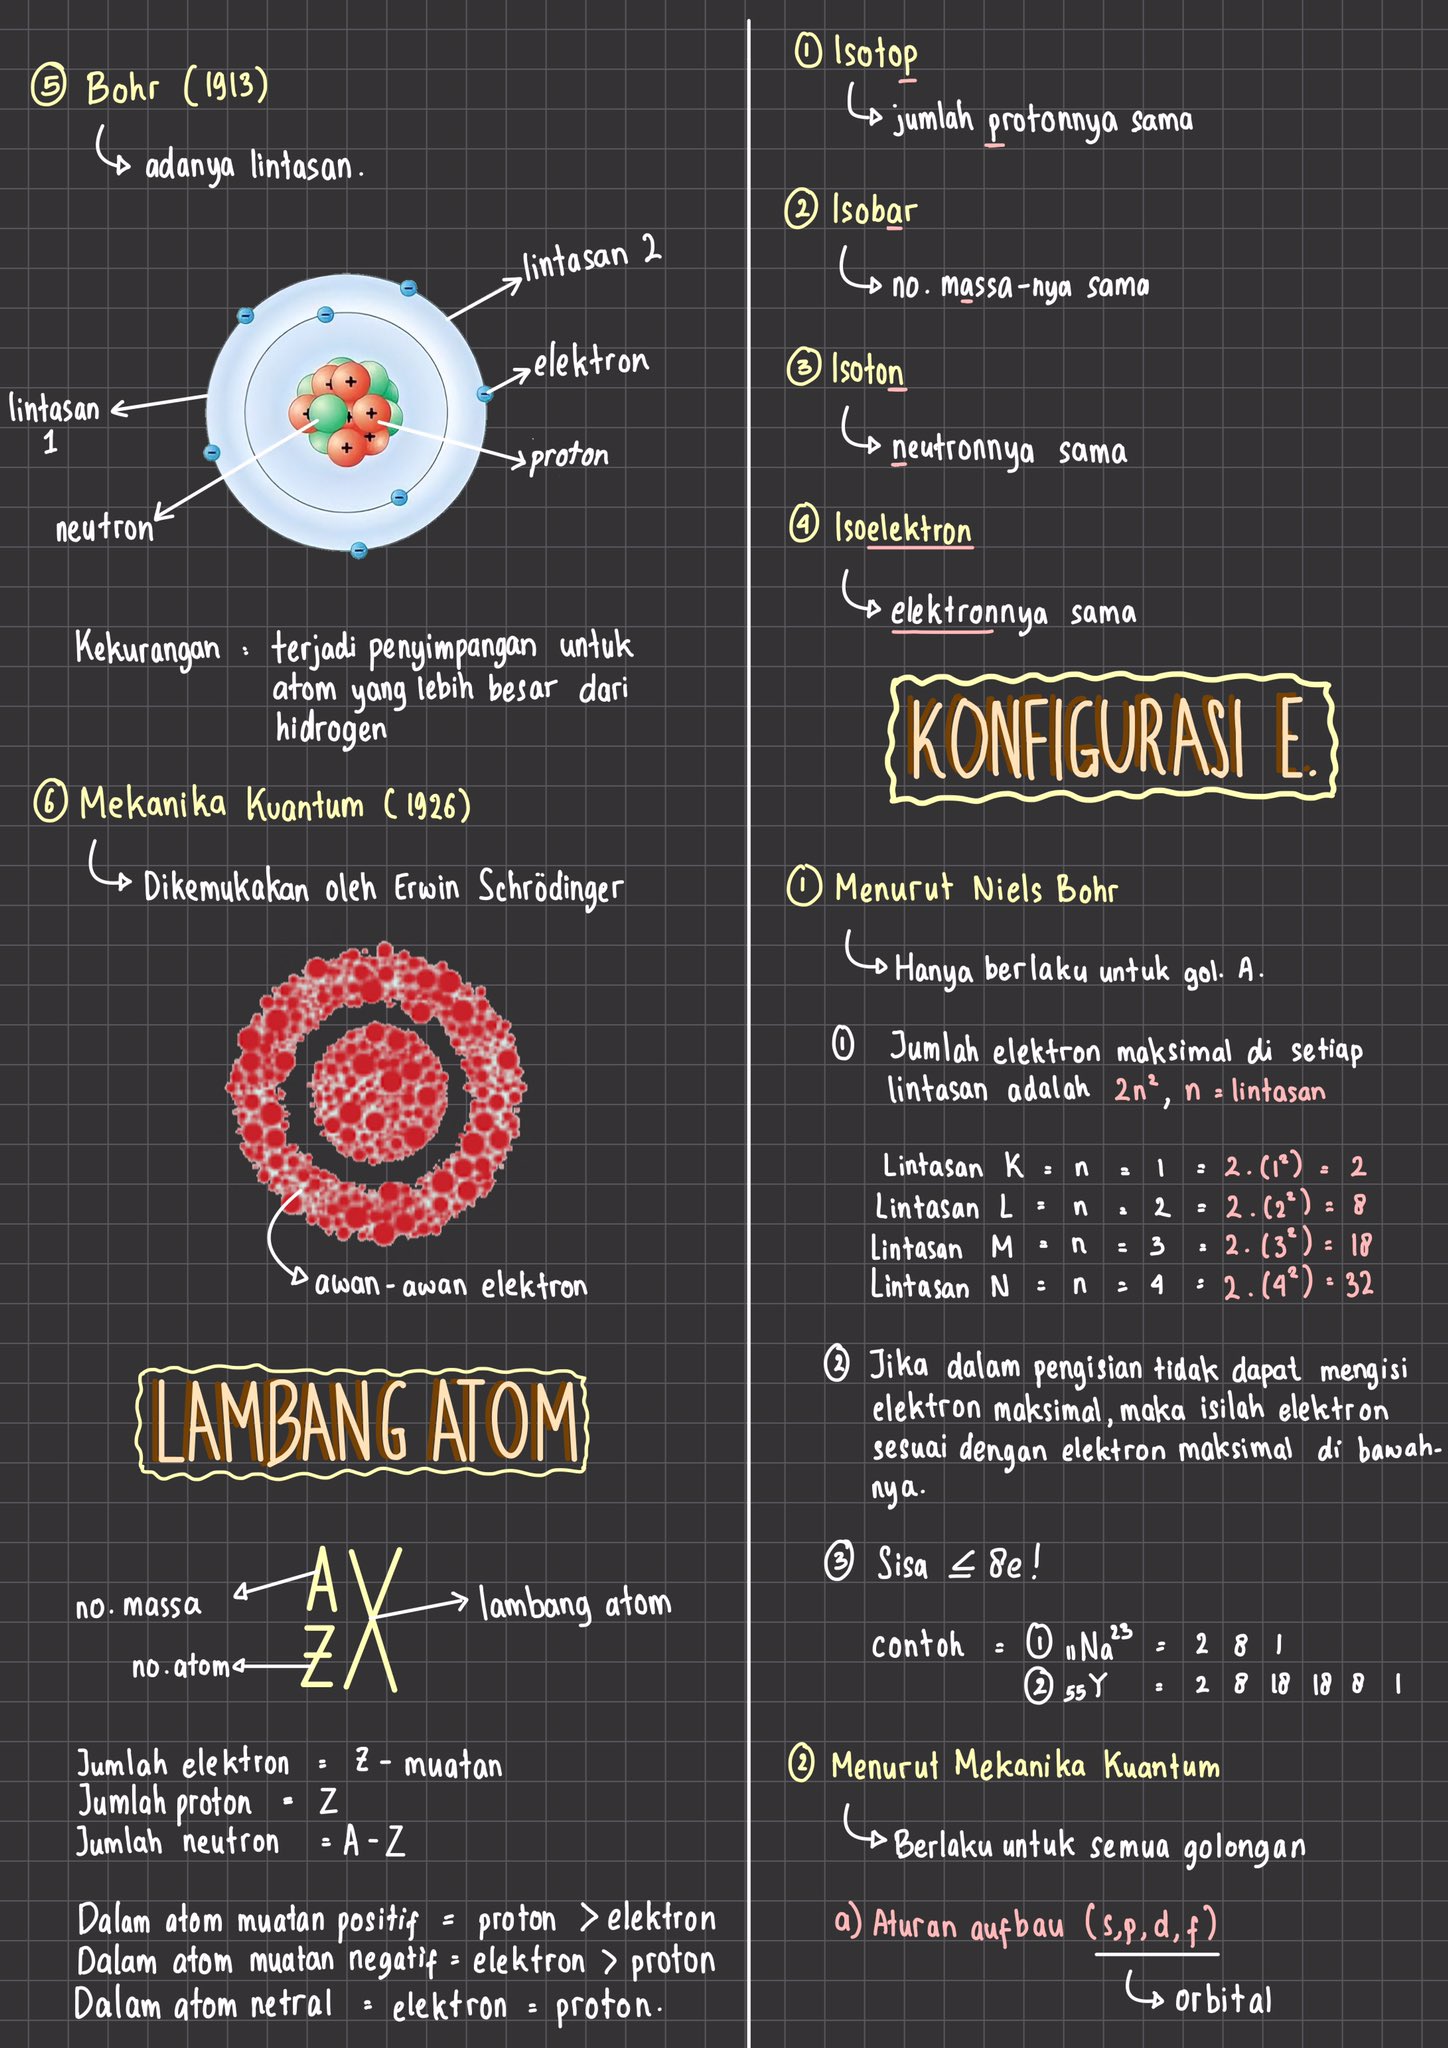 ⑤ Bohr (1913)
adanya lintasan.
lintasan 2
elektron
lintasan
1
proton
neutron
Kekurangan : terjadi penyimpangan untuk
atom yang lebih besar dari
hidrogen
⑥ Mekanika Kuantum (1926)
Dikemukakan oleh Erwin Schrödinger
awan-awan elektron
LAMBANG ATOM
A X
Z
no. massa
lambang atom
no. atom
Jumlah elektron = Z - muatan
Jumlah proton = Z
Jumlah neutron = A - Z
Dalam atom muatan positif = proton > elektron
Dalam atom muatan negatif = elektron > proton
Dalam atom netral = elektron = proton.
① Isotop
jumlah protonnya sama
② Isobar
no. massa-nya sama
③ Isoton
neutronnya sama
④ Isoelektron
elektronnya sama
KONFIGURASI E.
① Menurut Niels Bohr
Hanya berlaku untuk gol. A.
① Jumlah elektron maksimal di setiap
lintasan adalah 2n², n = lintasan
Lintasan K = n = 1 = 2.(1²) = 2
Lintasan L = n = 2 = 2.(2²) = 8
Lintasan M = n = 3 = 2.(3²) = 18
Lintasan N = n = 4 = 2.(4²) = 32
② Jika dalam pengisian tidak dapat mengisi
elektron maksimal, maka isilah elektron
sesuai dengan elektron maksimal di bawah-
nya.
③ Sisa ≤ 8e!
contoh = ① ₁₁Na²³ = 2 8 1
② ₅₅Y = 2 8 18 18 8 1
② Menurut Mekanika Kuantum
Berlaku untuk semua golongan
a) Aturan aufbau (s,p,d,f)
orbital